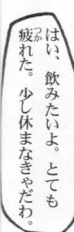 はい、飲みたいよ。とても
疲れた。少し休まなきゃだわ。
つか